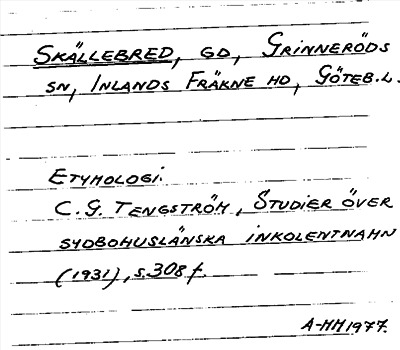 SKÄLLEBRED, GD, GRINNERÖDS
SN, INLANDS FRÄKNE HD, GÖTEB.L.
ETYMOLOGI.
C. G. TENGSTRÖM, STUDIER ÖVER
SYDBOHUSLÄNSKA INKOLENTNAMN
(1931), s.308 f.
A-HH1977.